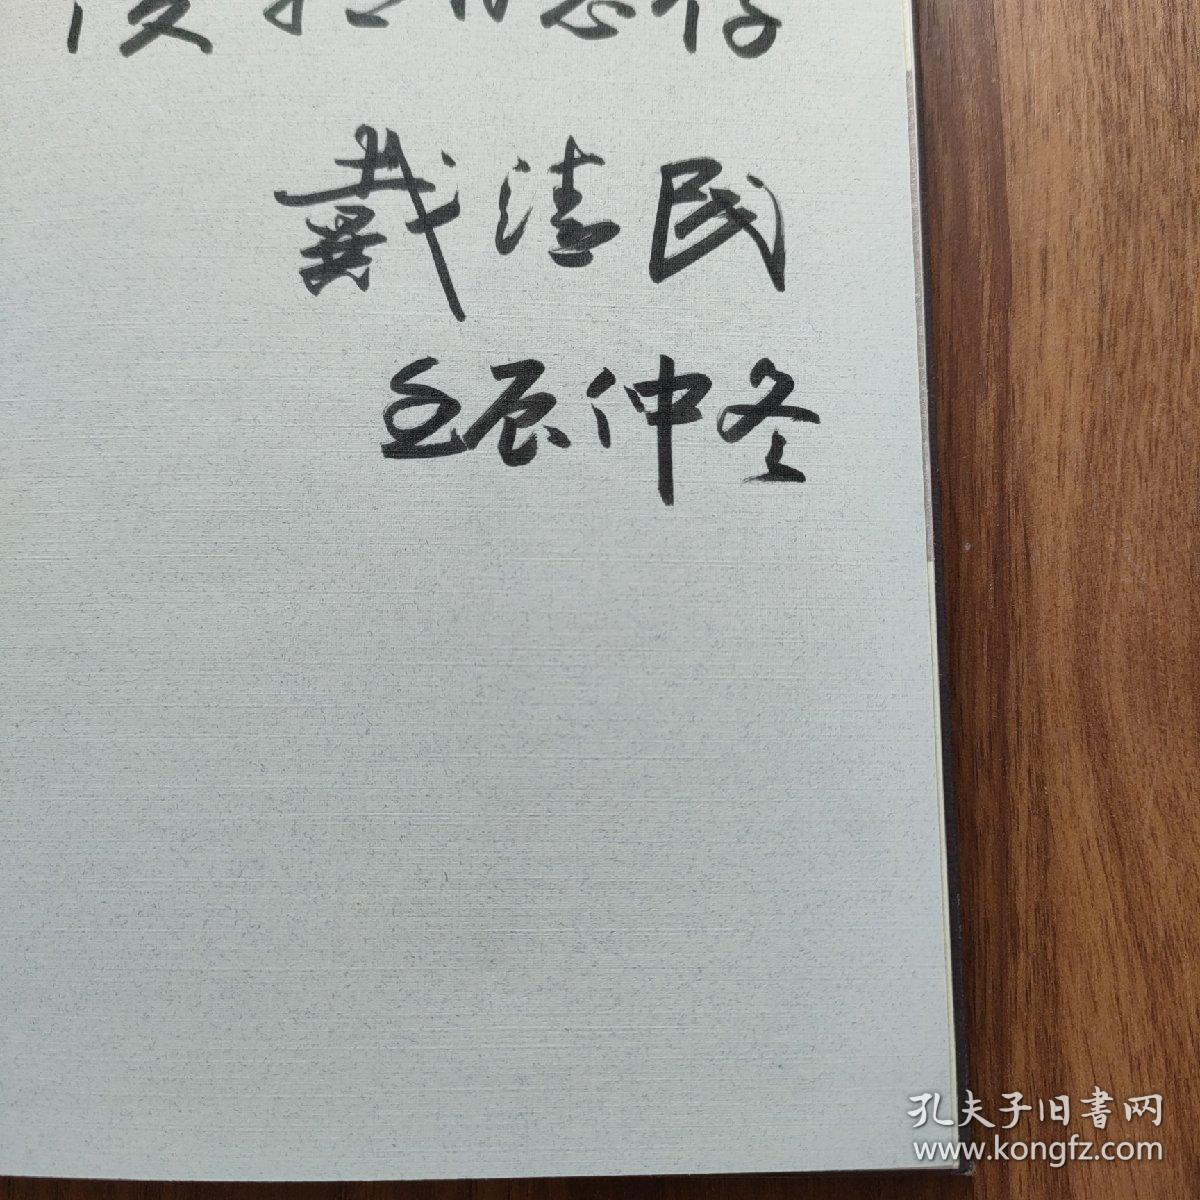 惠存
戴清民
壬辰仲冬
孔夫子旧書网
www.kongfz.com